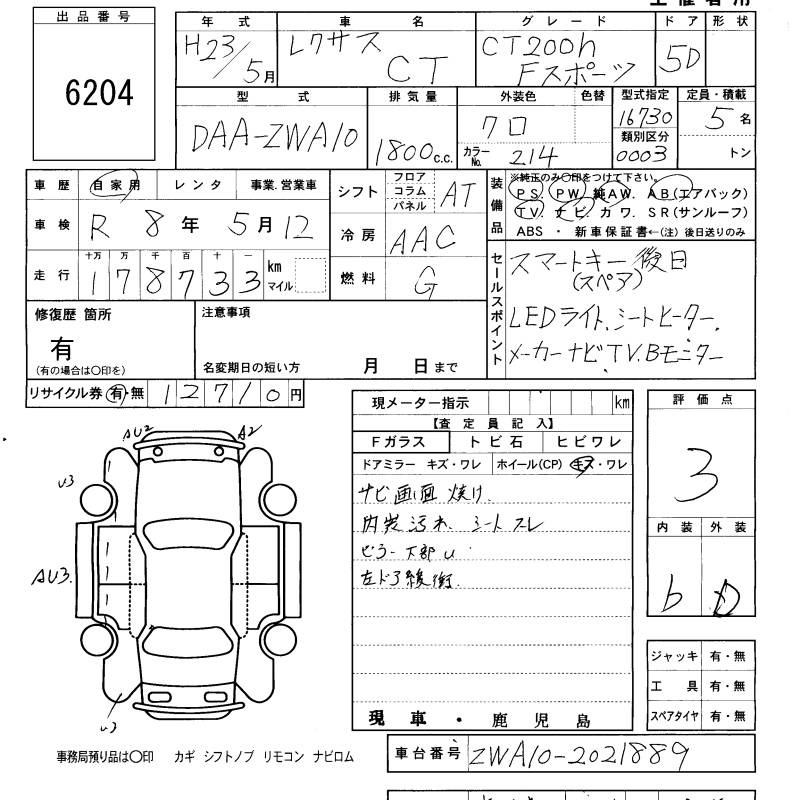 出品番号
6204
年式 車名 グレード ドア 形状
H23/5月 レクサス CT CT200h Fスポーツ 5D
型式 排気量 外装色 色替 型式指定 定員・積載
DAA-ZWA10 1800c.c. クロ 16730 5名
カラーNo. 214 類別区分 0003 トン
車歴 自家用 レンタ 事業.営業車
車検 R 8年 5月12
走行 十万 万 千 百 十 一
178733 km マイル
シフト フロア コラム パネル AT
冷房 AAC
燃料 G
装備品
※純正のみ〇印をつけて下さい。
PS. PW. 純AW. AB(エアバック)
TV. ナビ. カワ. SR(サンルーフ)
ABS ・ 新車保証書←(注) 後日送りのみ
セールスポイント
スマートキー後日
(スペア)
LEDライト.シートヒーター.
メーカーナビTV.Bモニター
修復歴 箇所
有
(有の場合は〇印を)
注意事項
名変期日の短い方 月 日まで
リサイクル券 有・無 12710円
現メーター指示 km
【査定員記入】
Fガラス トビ石 ヒビワレ
ドアミラー キズ・ワレ ホイール(CP) キズ・ワレ
ナビ画面 焼け.
内装汚れ. シートスレ
ピラー下部U
左ドア緩衝.
現車・鹿児島
評価点
3
内装 外装
b D
ジャッキ 有・無
工具 有・無
スペアタイヤ 有・無
AU2 A2
U3
AU3.
U3
事務局預り品は〇印 カギ シフトノブ リモコン ナビロム
車台番号 ZWA10-2021889